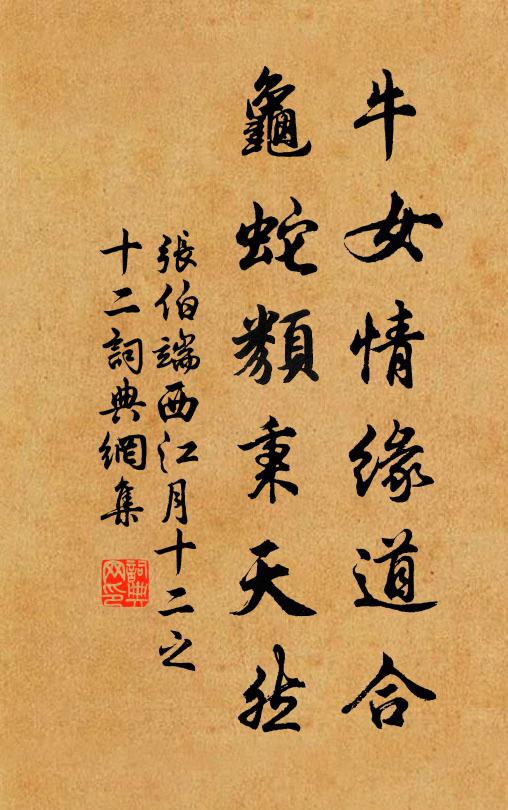 牛女情緣道合
龜蛇類秉天然
張伯端西江月十二之
十二詞典網集
詞典網印